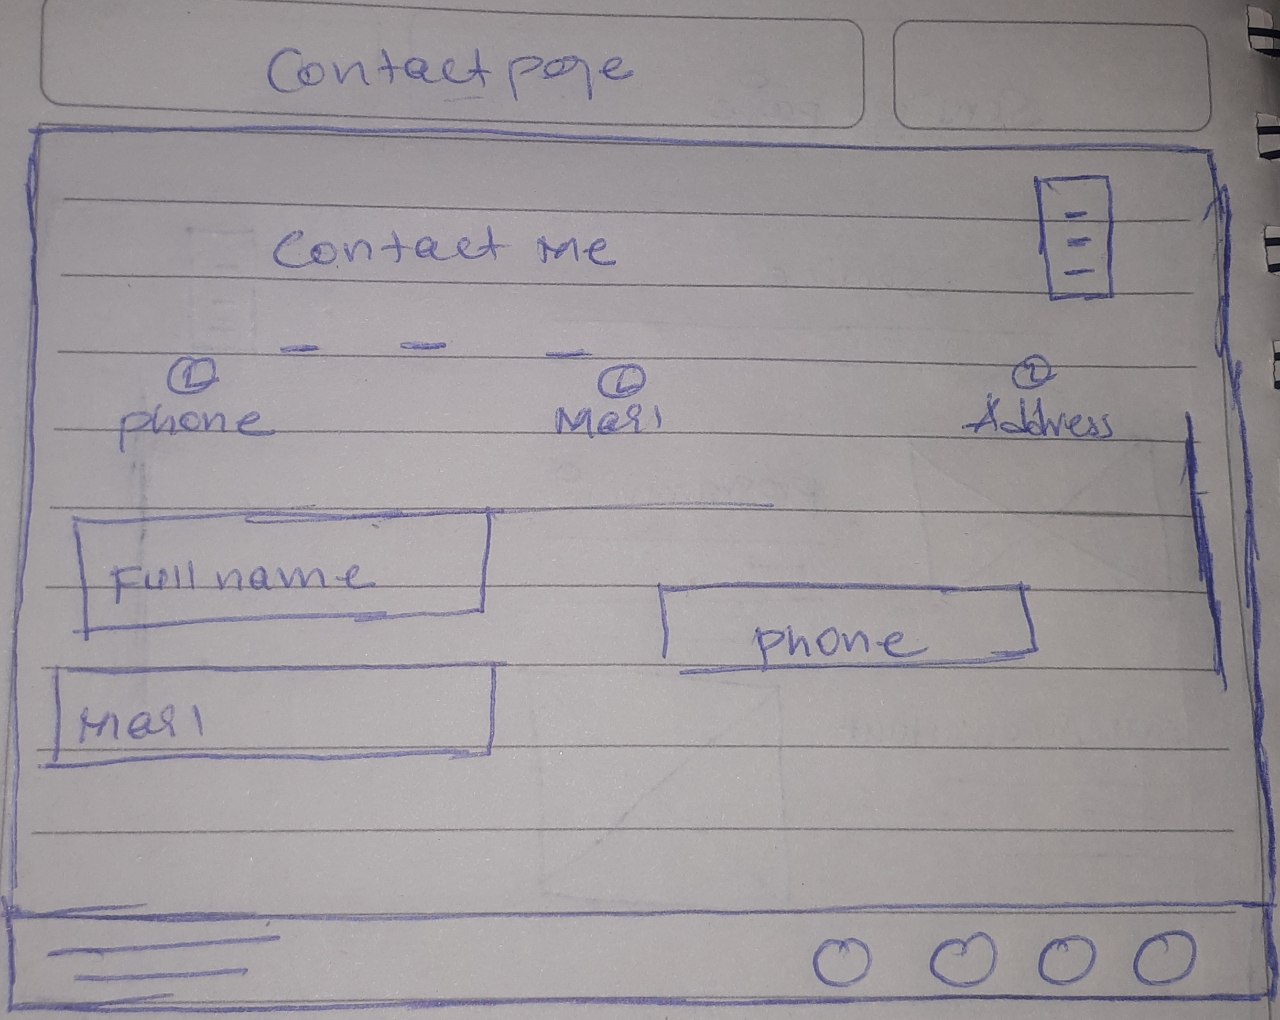 Contact page
Contact Me
phone Mail Address
Full name
phone
Mail